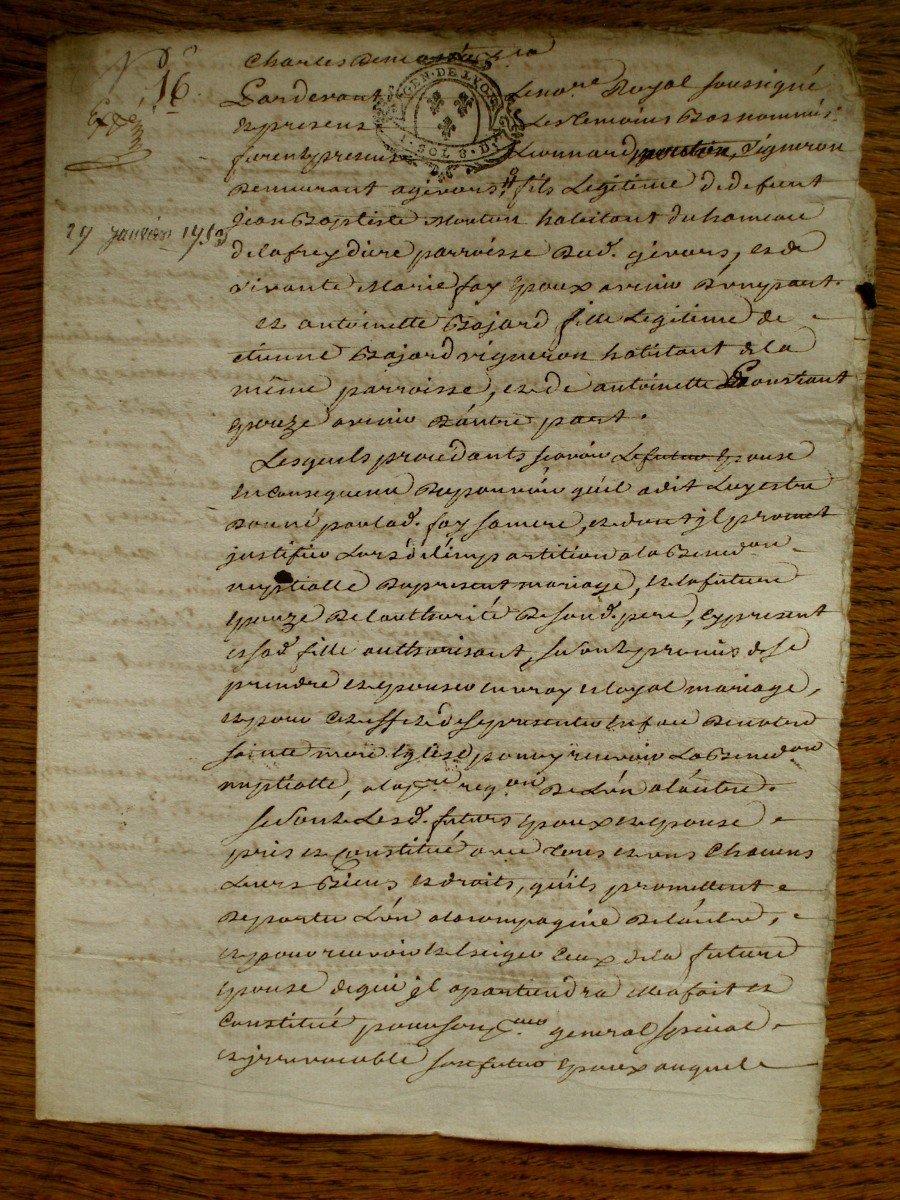 16
Expé
29 janvier 1753
GEN. DE LYON
SOLS D.
Pardevant Le no.re Royal soussigné
Et presens Les temoins Bas nommés
furent presens Leonnard mouton, vigneron
Demeurant a givors, fils Legitime De defunt
jean Baptiste Mouton habitant du hameau
de la freydiere parroisse Dud. givors, et de
vivante Marie fay Epoux avenir D'une part.
Et antoinette Bajard fille Legitime de
etienne Bajard vigneron habitant de la
même parroisse, et de antoinette Constant
Epouze avenir D'autre part.
Lesquels procedants scavoir Le futur Epouse
En consequence Du pouvoir qu'il a dit Luy estre
Donné par lad. fay sa mere, et dont jl promet
justifier Lors de l'impartition de la Bened.on
nuptialle Du present mariage, et la future
Epouze De l'authorité De son d. pere, cy present
et sad. fille authorisant, se sont promis de se
prendre et Epouser en vray et loyal mariage,
et pour cet effet de se presenter en face De notre
sainte mere Eglise pour y recevoir La Bened.on
nuptialle, a la p.re req.on De L'un a l'autre.
Se sont Lesd. futurs Epoux et Epouse
pris et Constitué avec tous et uns Chacuns
Leurs Biens et droits, qu'ils promettent
De porter L'un a la compagnie De l'autre,
et pour recevoir et Exiger Ceux de la future
Epouse de qui jl apartiendra Elle a fait et
Constitué pour son p.reur general special
et jrrevocable son futur Epoux auquel